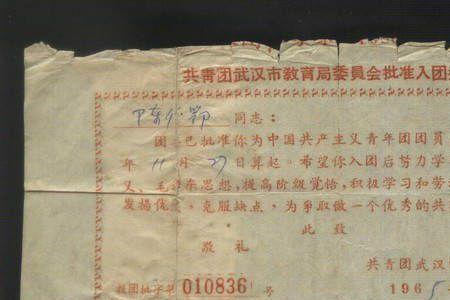 共青团武汉市教育局委員会批准入团
同志：
团 已批准你为中国共产主义青年团团员
年 11 月 27 日算起。希望你入团后努力学
义、毛泽东思想，提高阶級覚悟，积极学习和劳
发揚优 ，克服缺点，为爭取做一个优秀的共
此 致
敬 礼
共青团武汉
团批字第 010836 号
1965